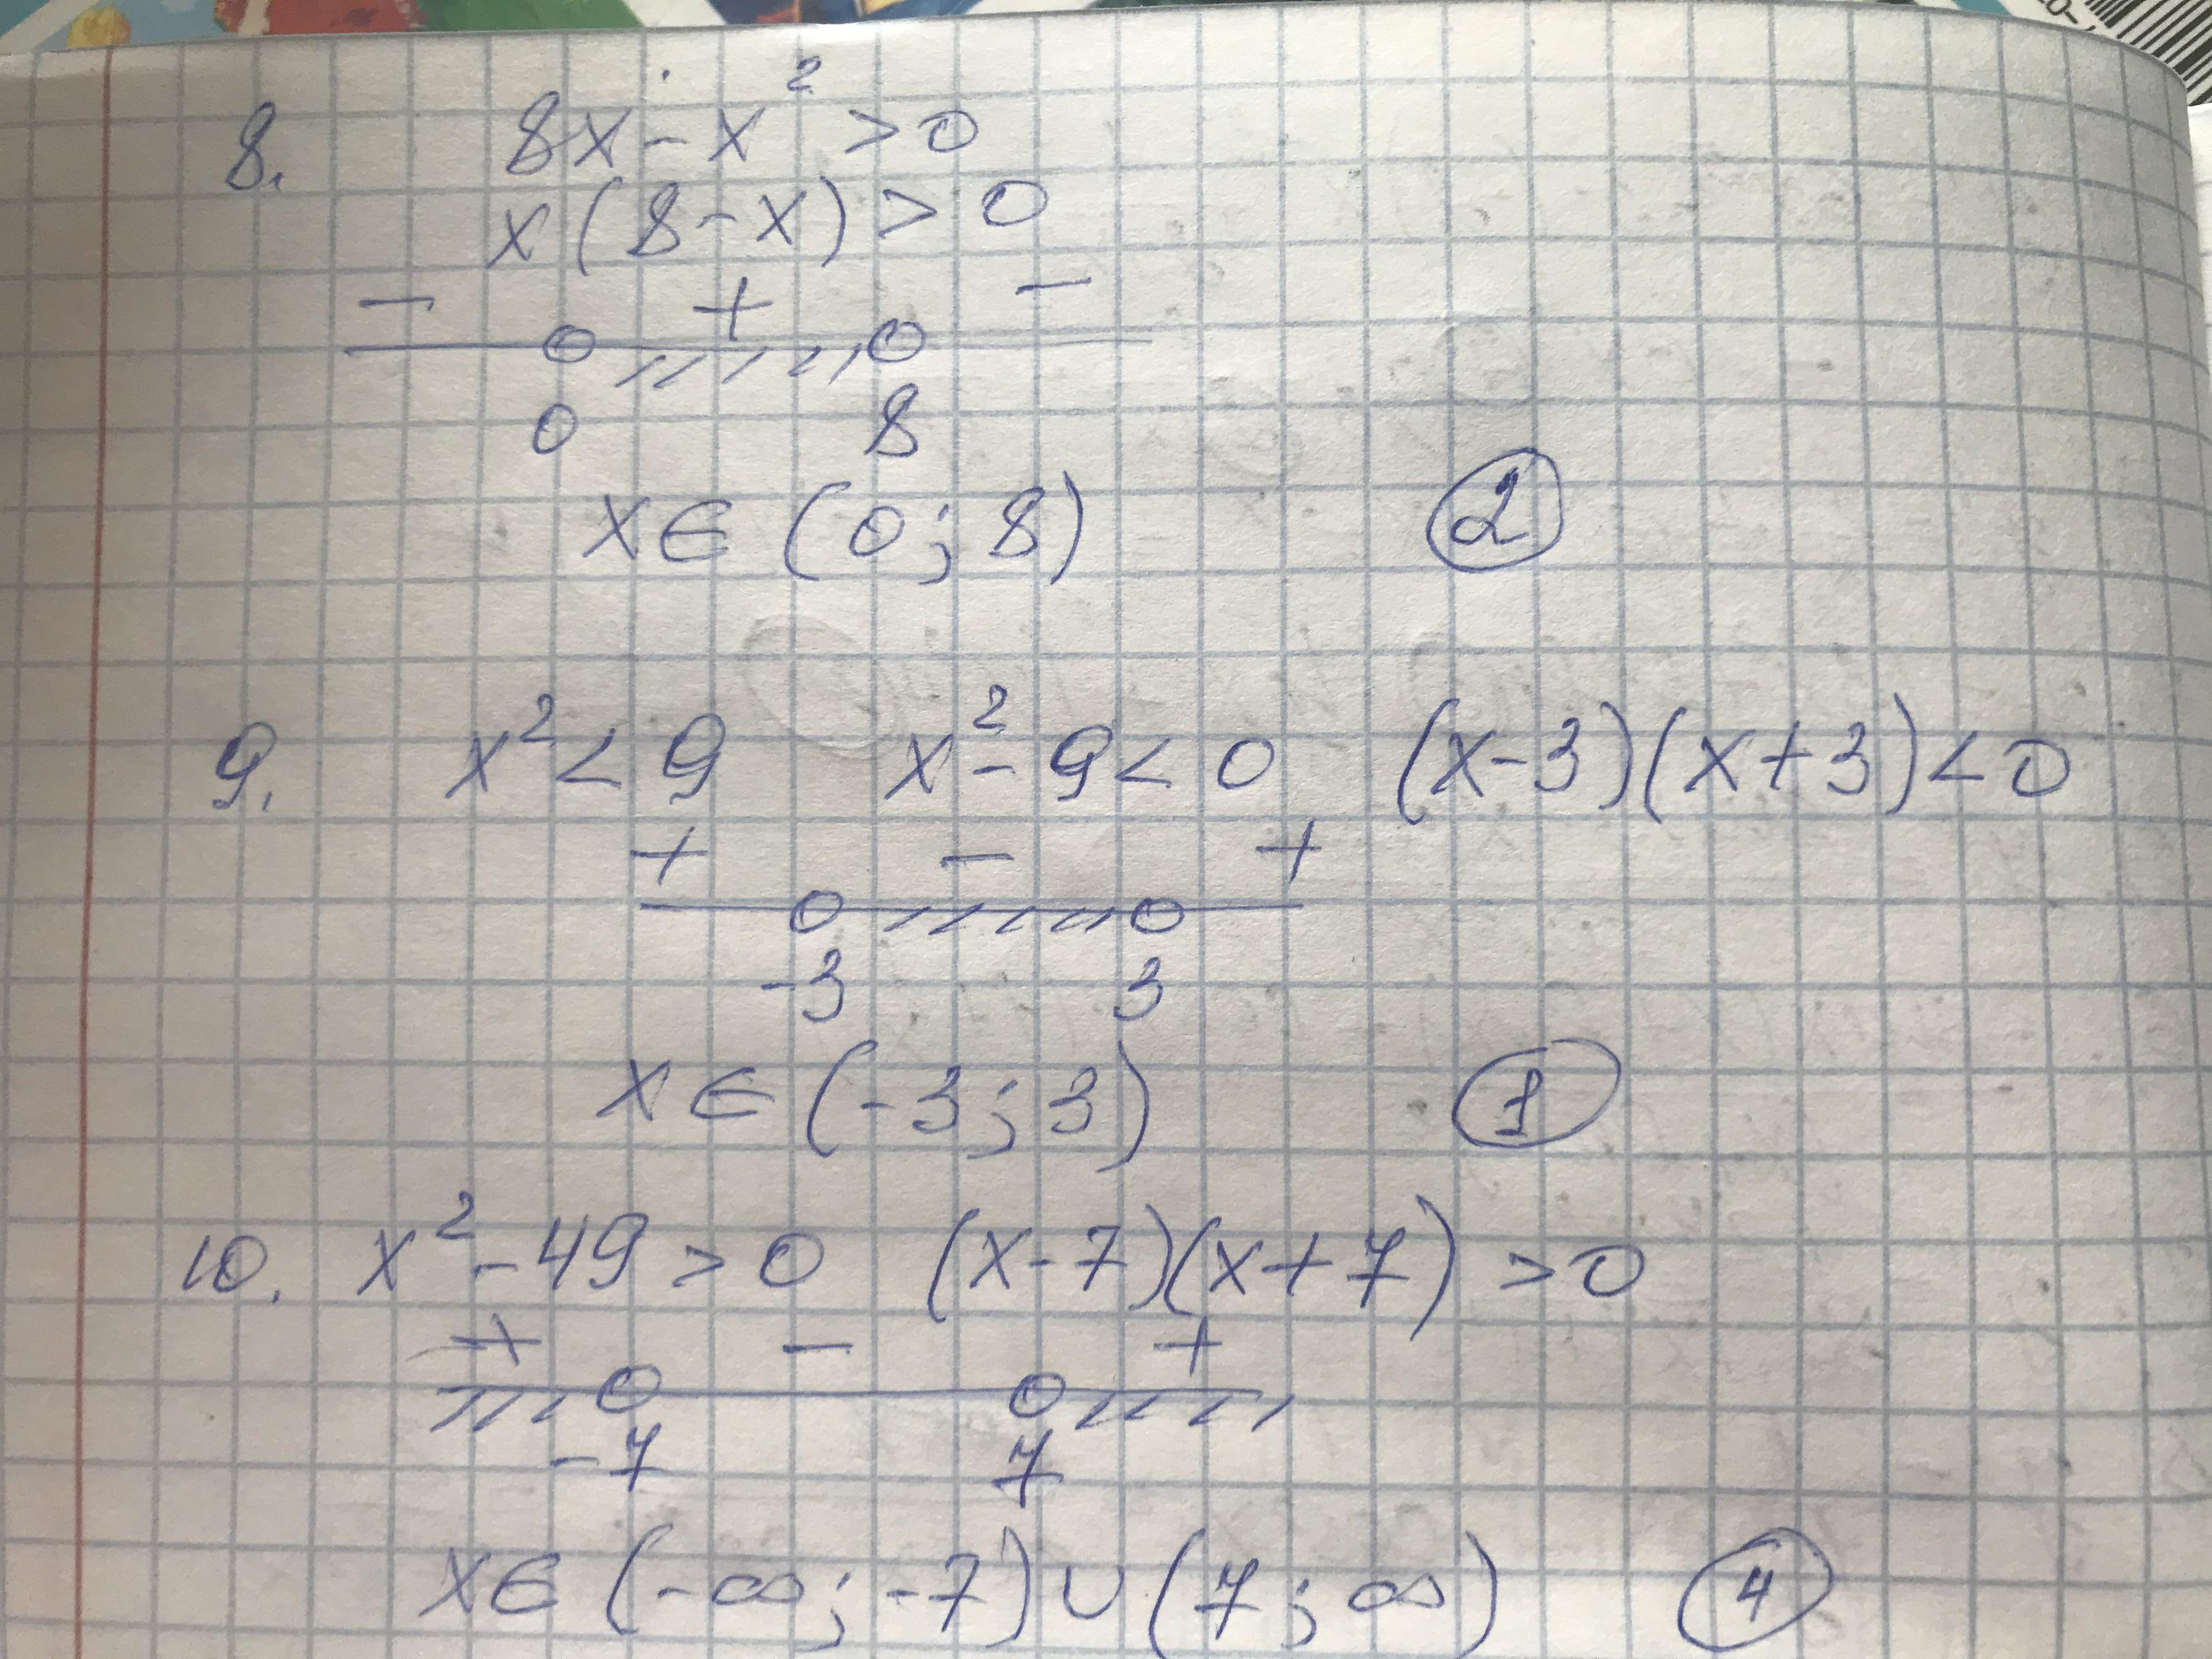 8. 8x - x² > 0
x(8 - x) > 0
- + -
0 8
x ∈ (0; 8) 2
9. x² < 9 x² - 9 < 0 (x-3)(x+3) < 0
+ - +
-3 3
x ∈ (-3; 3) 1
10. x² - 49 > 0 (x-7)(x+7) > 0
+ - +
-7 7
x ∈ (-∞; -7) ∪ (7; ∞) 4